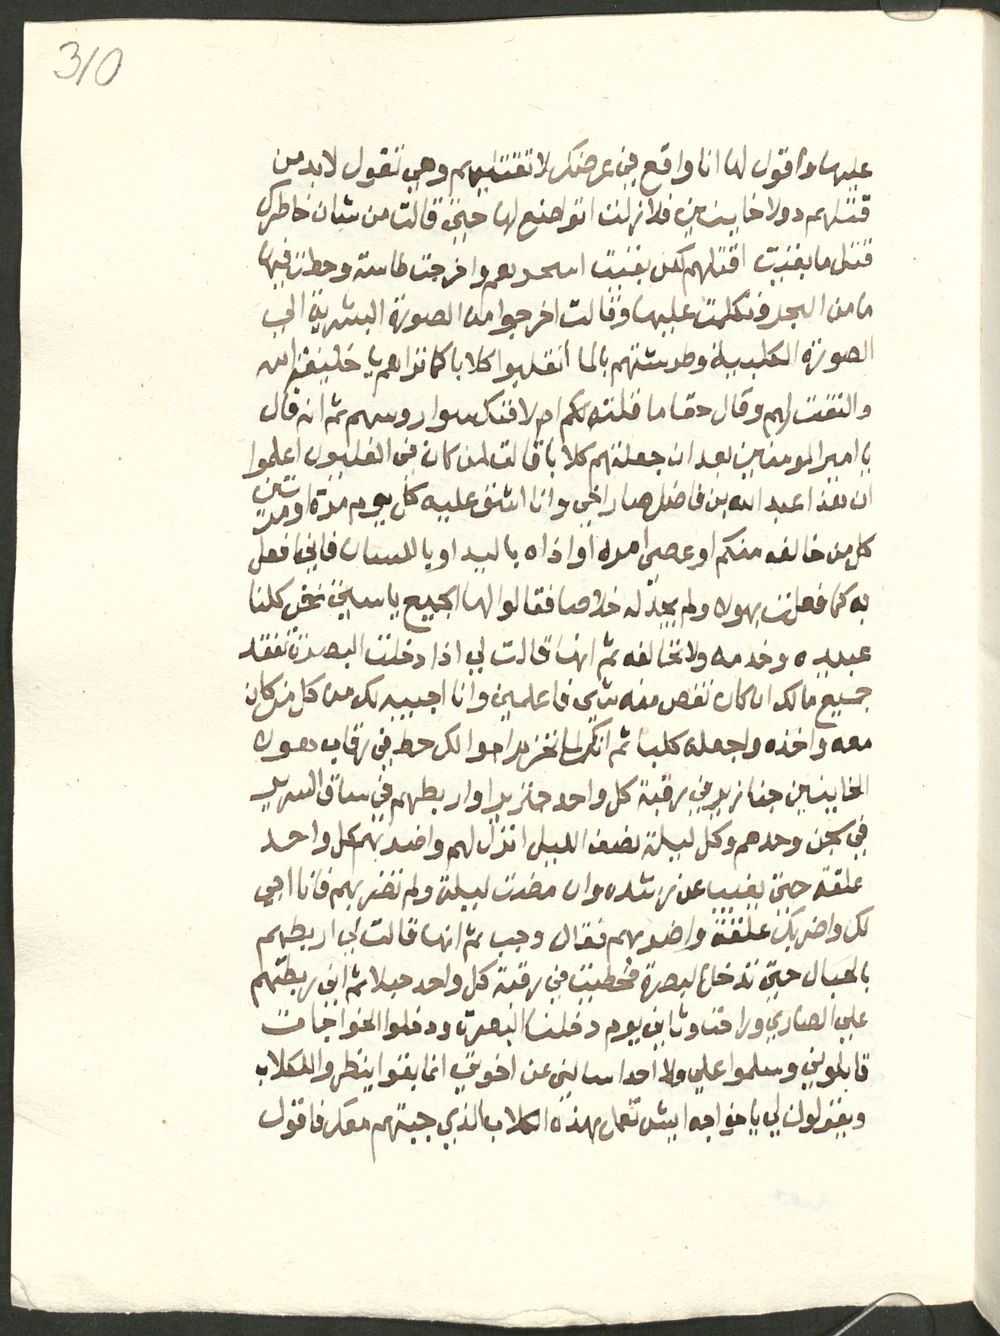 310
عليها واقول لها انا واقع في عرضكي لا تقتليهم وهي تقول لا بد من
قتلهم دولا خاينين فلا زلت اتواضع لها حتي قالت من شان خاطرك
قتل ما بقيت اقتلهم لكن بقيت اسحرهم واخرجت طاسة وحطت فيها
ما من البحر وتكلمت عليها وقالت اخرجوا من الصورة البشرية الي
الصورة الكلبية وطرشتهم بالما انقلبوا كلابا كما تراهم يا خليفة الله
والتفت لهم وقال حقا ما قلته لكم ام لا فنكسوا روسهم ثم انه قال
يا امير المومنين بعد ان جعلتهم كلابا قالت لمن كان في الغليون اعلموا
ان هذا عبد الله بن فاضل صار اخي وانا اشق عليه كل يوم مرة او مرتين
كل من خالفه منكم او عصي امره او اذاه باليد او باللسان فاني افعل
به كما فعلت بهولا ولم يجد له خلاصا فقالوا لها الجميع يا ستي نحن كلنا
عبيده وخدمه ولا نخالفه ثم انها قالت لي اذا دخلت البصرة تفقد
جميع مالك ان كان نقص منه شي فاعلمني وانا اجيبه لك من كل من كان
معه واخذه واجعله كلبا ثم انك لما تخزن اموالك حط في رقاب هولا
الخاينين جنازير في رقبة كل واحد جنزيرا واربطهم في ساق السرير
في سجن وحدهم وكل ليلة نصف الليل انزل لهم واضربهم كل واحد
علقة حتي يغيب عن رشده وان مضت ليلة ولم تضربهم فانا اجي
لك واضربك علقة واضربهم فقال وجب ثم انها قالت لي اربطهم
بالحبال حتي تدخل البصرة فحطيت في رقبة كل واحد حبلا ثم اني ربطتهم
علي الصاري وراحت وثاني يوم دخلنا البصرة ودخلوا الخواجات
قابلوني وسلموا علي ولا احدا سالني عن اخوتي انما بقوا ينظروا للكلاب
ويقولون لي يا خواجه ايش تعمل بهذه الكلاب الذي جبتهم معك فاقول